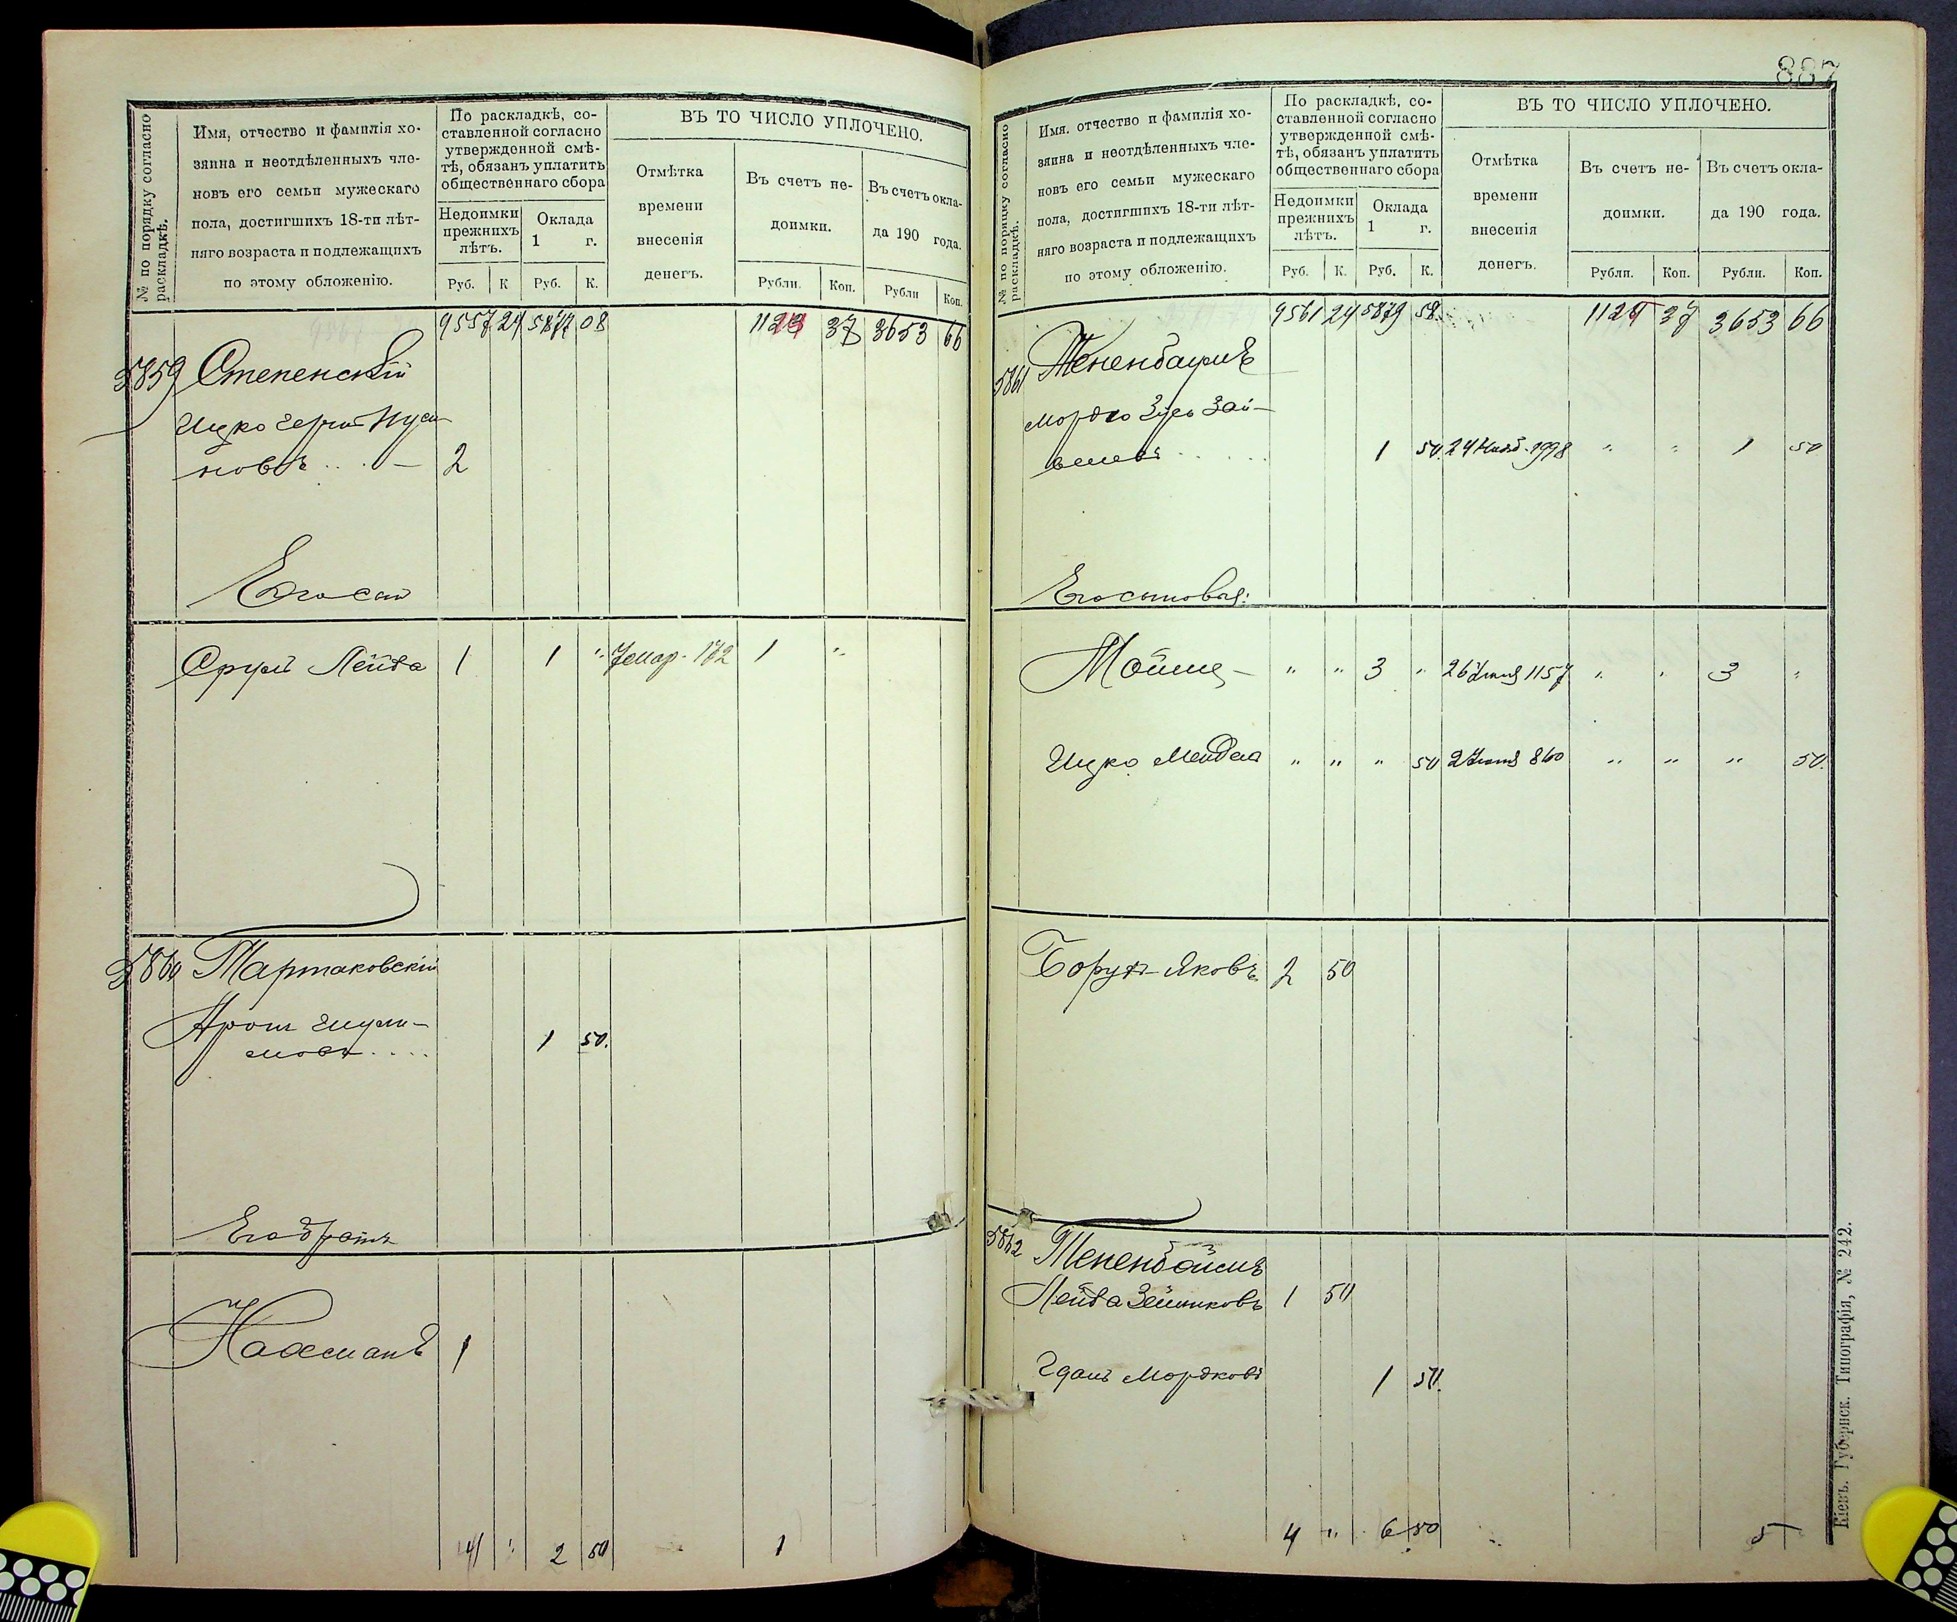 № по порядку согласно раскладкѣ.
Имя, отчество и фамилія хо-
зяина и неотдѣленныхъ чле-
новъ его семьи мужескаго
пола, достигшихъ 18-ти лѣт-
няго возраста и подлежащихъ
по этому обложенію.
По раскладкѣ, со-
ставленной согласно
утвержденной смѣ-
тѣ, обязанъ уплатить
общественнаго сбора
Недоимки прежнихъ лѣтъ.
Оклада 1 г.
Руб. К Руб. К.
ВЪ ТО ЧИСЛО УПЛОЧЕНО.
Отмѣтка
времени
внесенія
денегъ.
Въ счетъ не-
доимки.
Въ счетъ окла-
да 190 года.
Рубли. Коп. Рубли Коп.
9557 24 5877 08 37 3653 66
5859 Степенскій
Ицко Герш Нуси-
новъ . . . — 2
Его сын
Сруль Лейба 1 1 " 7 мар. 172 1 "
5860 Тартаковскій
Арон Шули-
мовъ . . . . 1 50.
Его братъ
Нахманъ 1
4 " 2 50 1
887
№ по порядку согласно раскладкѣ.
Имя, отчество и фамилія хо-
зяина и неотдѣленныхъ чле-
новъ его семьи мужескаго
пола, достигшихъ 18-ти лѣт-
няго возраста и подлежащихъ
по этому обложенію.
По раскладкѣ, со-
ставленной согласно
утвержденной смѣ-
тѣ, обязанъ уплатить
общественнаго сбора
Недоимки прежнихъ лѣтъ.
Оклада 1 г.
Руб. К. Руб. К.
ВЪ ТО ЧИСЛО УПЛОЧЕНО.
Отмѣтка
времени
внесенія
денегъ.
Въ счетъ не-
доимки.
Въ счетъ окла-
да 190 года.
Рубли. Коп. Рубли. Коп.
9561 24 5879 58 37 3653 66
5861 Тененбаумъ
Мордко Зусь Зай-
1 50 24 1998 " " 1 50
Его сыновья:
Мойше — " " 3 " 26 1157 " " 3 "
Ицко Мендель " " " 50 2 860 " " " 50.
Борух Яковъ 2 50
5862 Тененбаймъ
Лейба 1 50
Мордковъ 1 50.
4 " 6 50 5
Кіевъ. Губернск. Типографія, № 242.